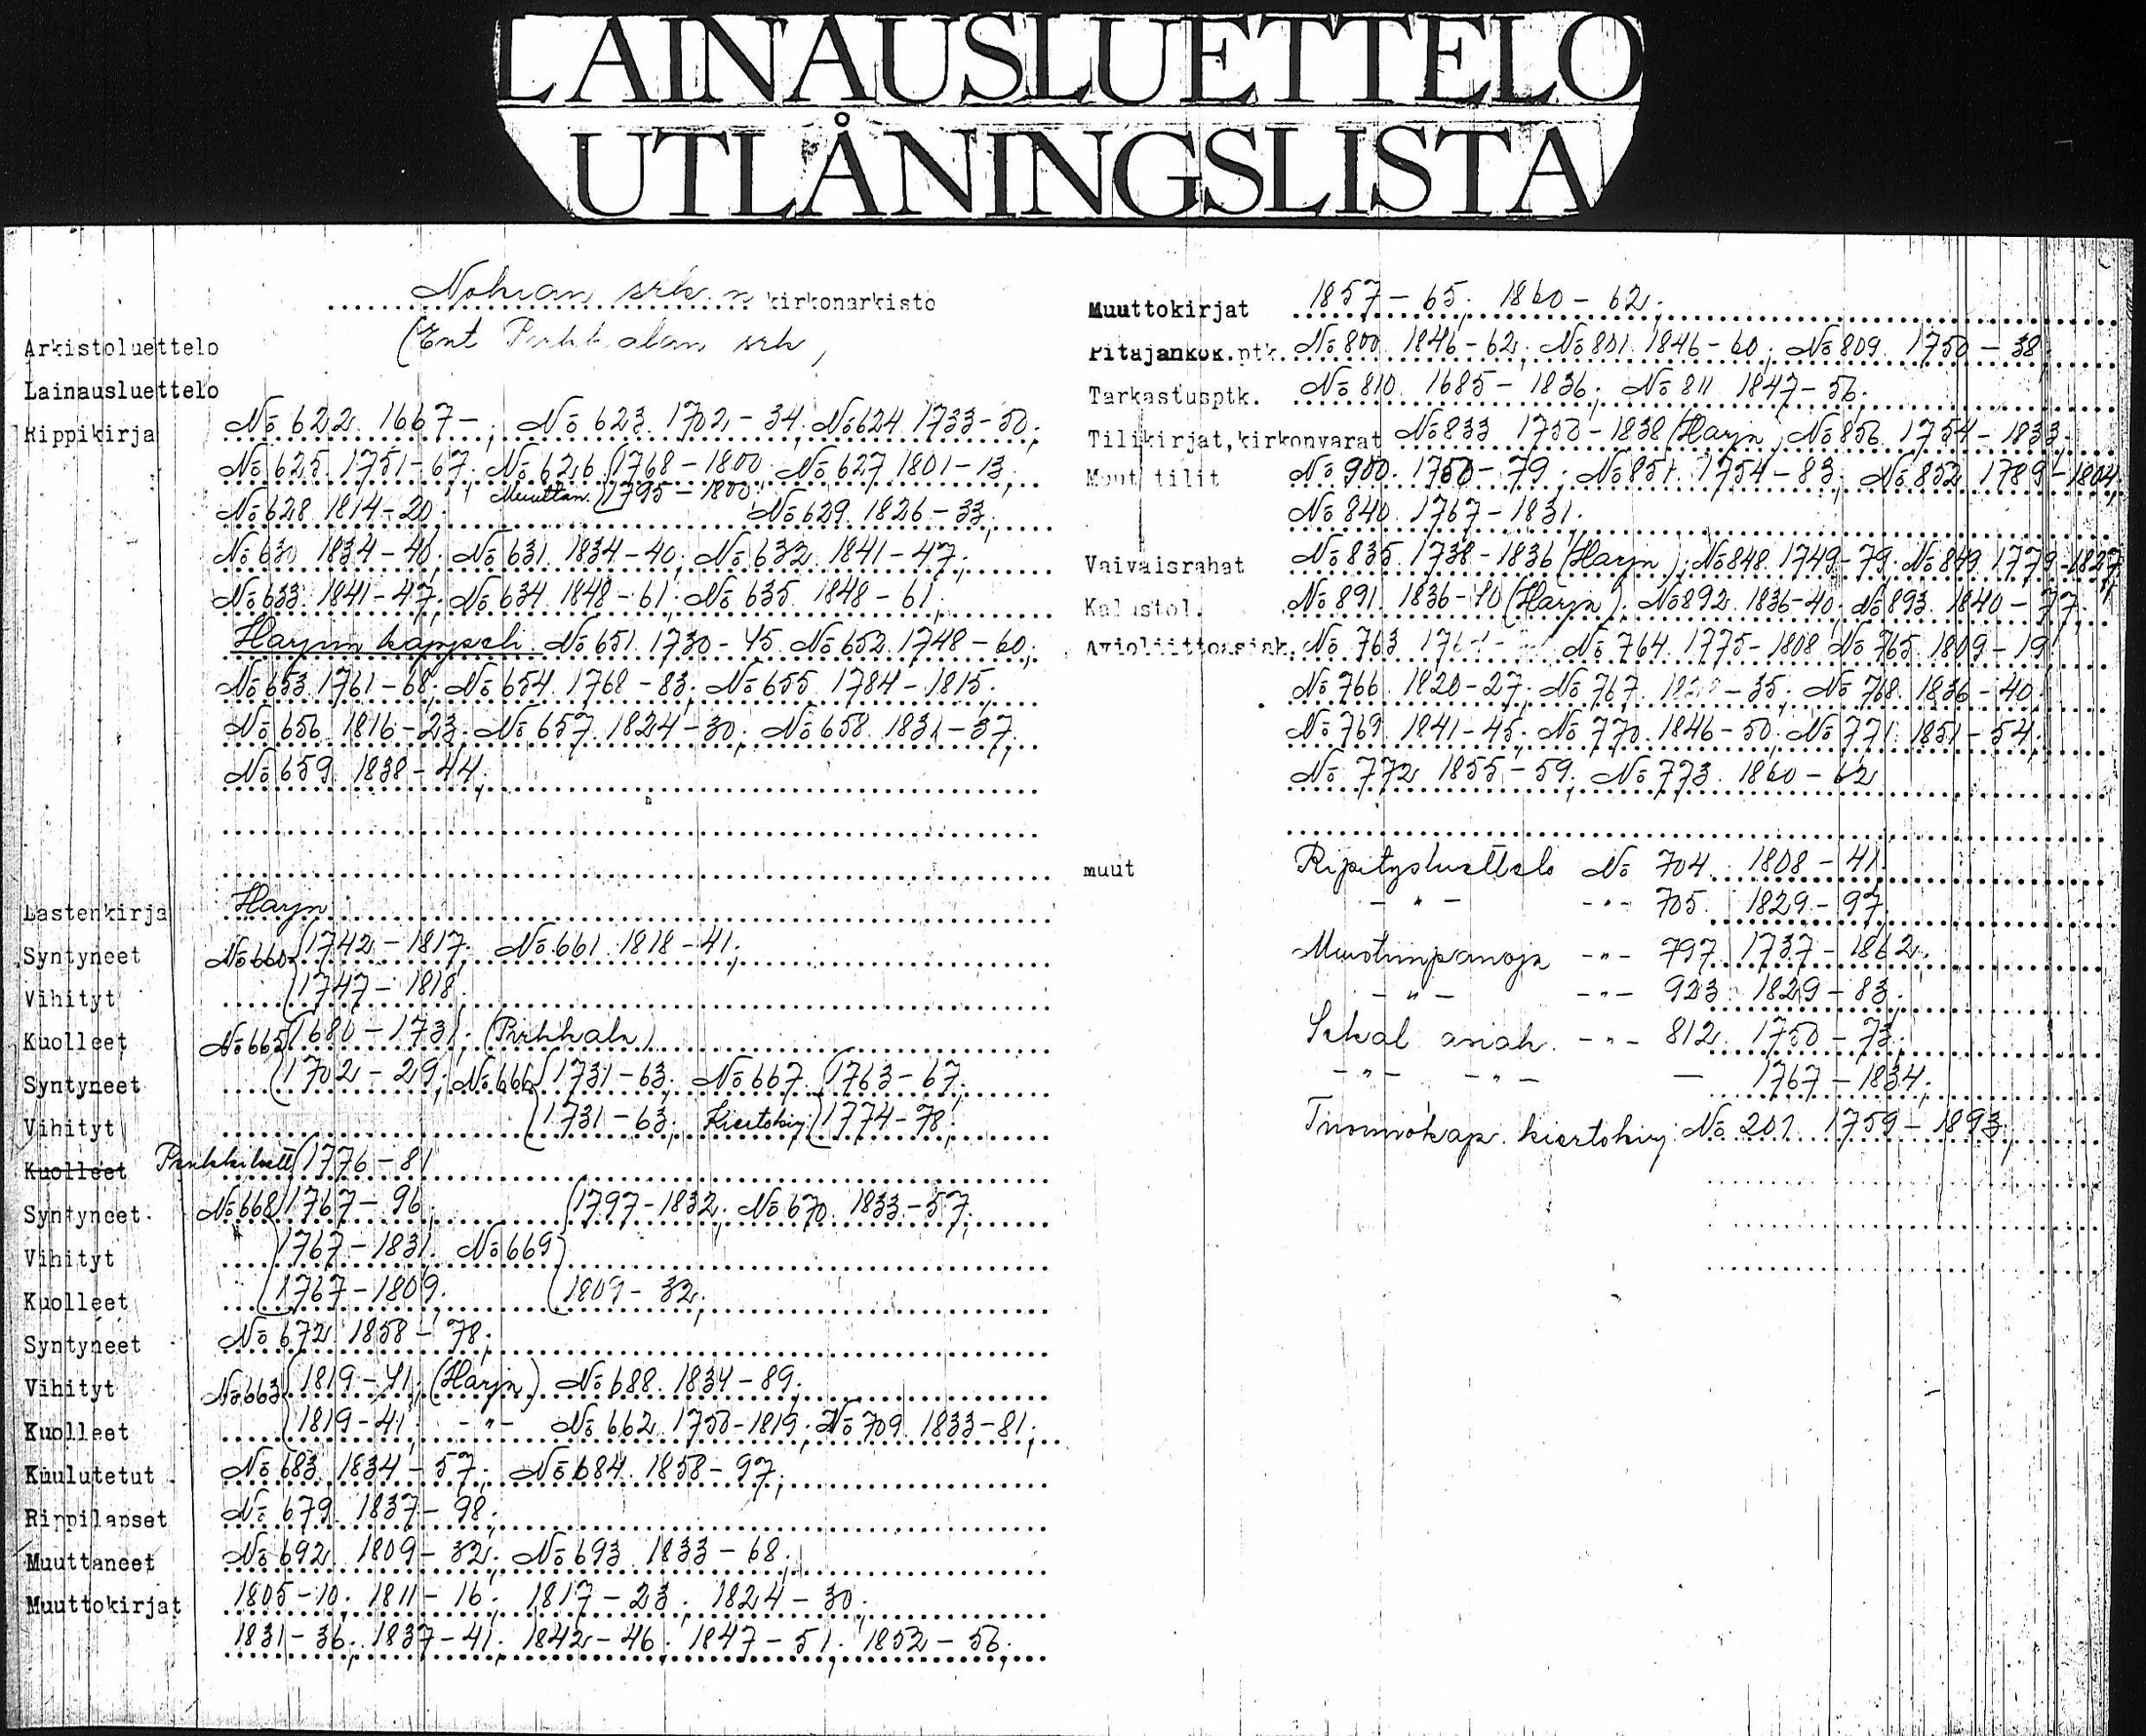 LAINAUSLUETTELO
UTLÅNINGSLISTA
Nokian srk:n kirkonarkisto
Arkistoluettelo (Ent Pirkkalan srk)
Lainausluettelo
Rippikirja No 622. 1667-; No 623. 1702-34; No 624. 1733-50;
No 625. 1751-67; No 626. (1768-1800; No 627. 1801-13;
Muuttan. (1795-1800;
No 628. 1814-20; No 629. 1826-33;
No 630 1834-40; No 631. 1834-40; No 632. 1841-47;
No 633. 1841-47; No 634. 1848-61; No 635. 1848-61;
Harjun kappeli. No 651. 1730-45. No 652. 1748-60;
No 653. 1761-68; No 654. 1768-83; No 655. 1784-1815;
No 656. 1816-23; No 657. 1824-30; No 658. 1831-37;
No 659. 1838-44;
Lastenkirja Harju
Syntyneet No 660 (1742-1817; No 661. 1818-41;
Vihityt (1747-1818;
Kuolleet No 665 (1680-1731; (Pirkkala)
Syntyneet (1702-29; No 666 (1731-63; No 667. (1763-67;
Vihityt (1731-63; Kiertokirj. (1774-78;
Kuolleet (1776-81
Syntyneet No 668 (1767-96; (1797-1832; No 670. 1833-57;
Vihityt (1767-1831. No 669
Kuolleet (1767-1809; (1809-32;
Syntyneet No 672 1858-78;
Vihityt No 663 (1819-41; (Harju) No 688. 1834-89;
Kuolleet (1819-41; -"- No 662. 1750-1819; No 709. 1833-81;
Kuulutetut No 683. 1834-57; No 684. 1858-97;
Rippilapset No 679. 1837-98;
Muuttaneet No 692. 1809-32; No 693. 1833-68;
Muuttokirjat 1805-10; 1811-16; 1817-23; 1824-30;
1831-36; 1837-41; 1842-46; 1847-51; 1852-56;
Muuttokirjat 1857-65; 1860-62;
Pitäjänkok.ptk. No 800. 1846-62; No 801. 1846-60; No 809. 1750-38;
Tarkastusptk. No 810. 1685-1836; No 811 1847-56;
Tilikirjat, kirkonvarat No 833 1750-1838 (Harju); No 856. 1754-1833;
Muut tilit No 900. 1750-79; No 851. 1754-83; No 852. 1789-1804;
No 840. 1767-1831;
Vaivaisrahat No 835. 1738-1836 (Harju); No 848. 1749-79; No 849. 1779-1837;
Kalustol. No 891. 1836-40 (Harju); No 892. 1836-40; No 893. 1840-77;
Avioliittoasiak. No 763 No 764. 1775-1808 No 765. 1809-19;
No 766. 1820-27; No 767. -35; No 768. 1836-40;
No 769. 1841-45; No 770. 1846-50; No 771. 1851-54;
No 772 1855-59; No 773. 1860-62
muut Ripitysluettelo No 704. 1808-41;
-"- -"- 705. 1829-97
Muistiinpanoja -"- 797. 1737-1862;
-"- -"- 923. 1829-83;
Sekal asiak. -"- 812. 1750-73;
-"- -"- — 1767-1834;
Tuomiokap. kiertokirj. No 201. 1759-1893;